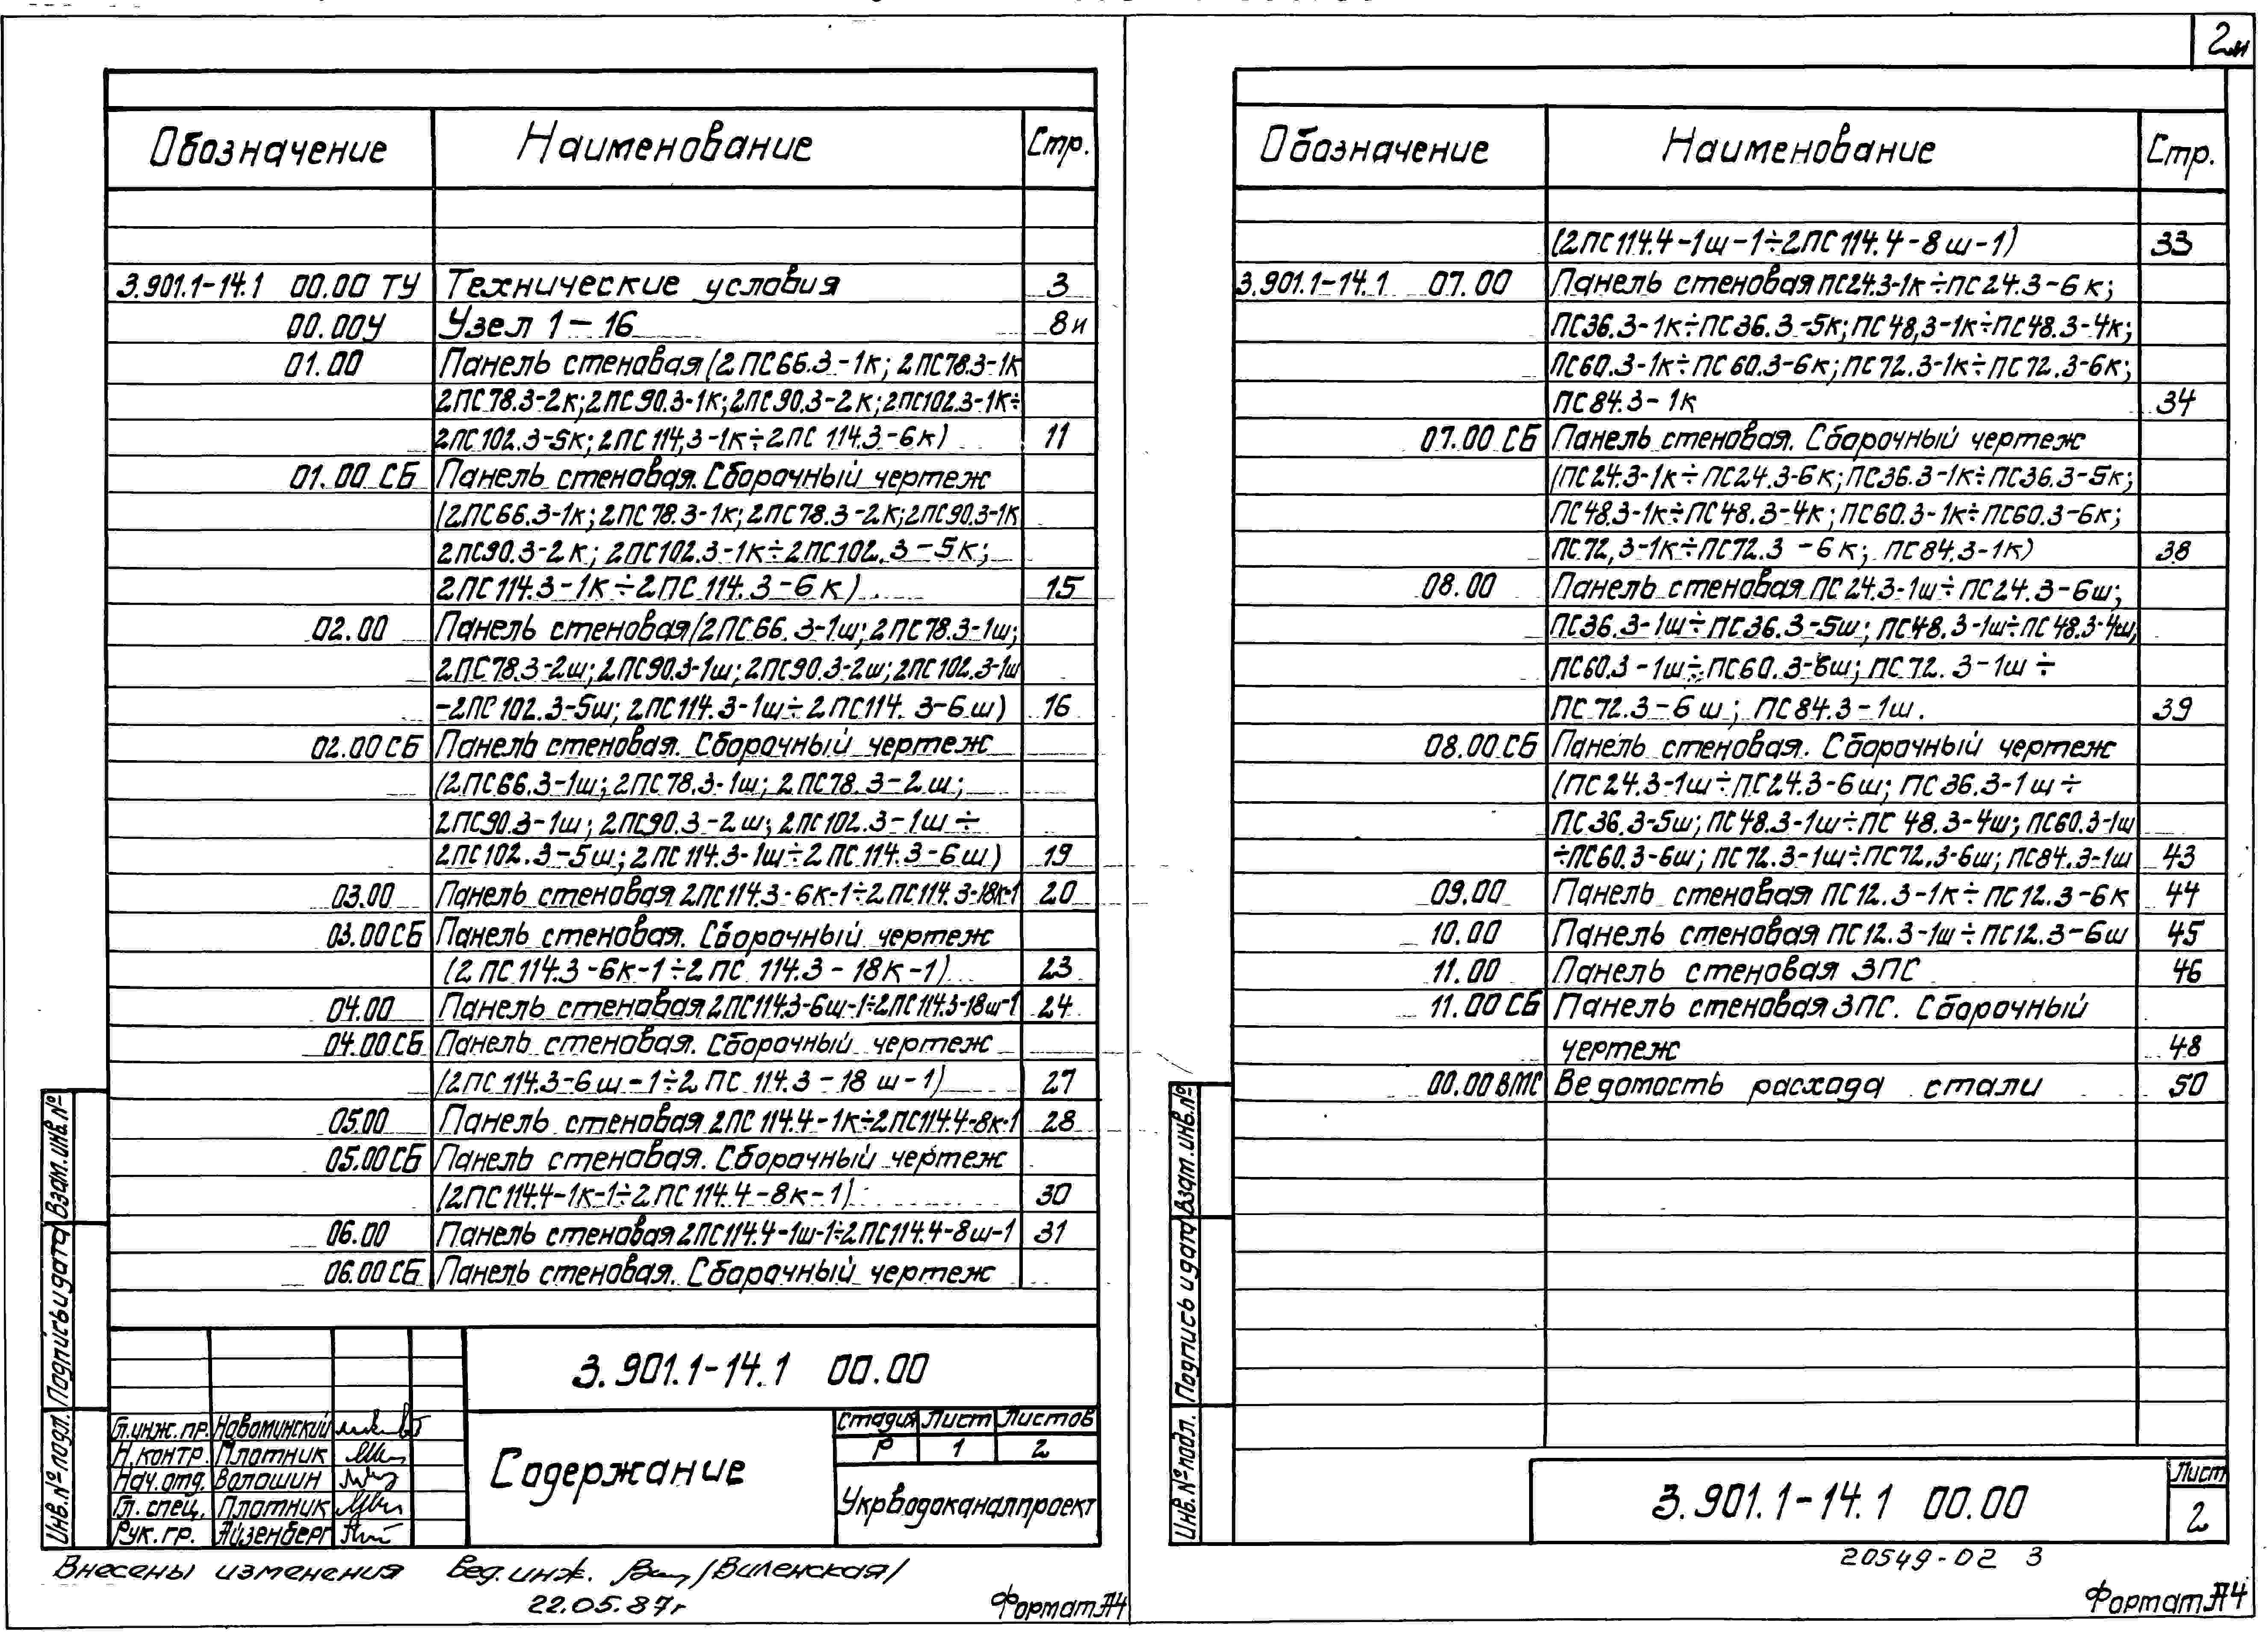 Обозначение Наименование Стр.
3.901.1-14.1 00.00 ТУ Технические условия 3
00.00У Узел 1-16 8и
01.00 Панель стеновая (2ПС66.3-1к; 2ПС78.3-1к
2ПС78.3-2к; 2ПС90.3-1к; 2ПС90.3-2к; 2ПС102.3-1к÷
2ПС102.3-5к; 2ПС114,3-1к÷2ПС 114.3-6к) 11
01.00 СБ Панель стеновая. Сборочный чертеж
(2ПС66.3-1к; 2ПС78.3-1к; 2ПС78.3-2к; 2ПС90.3-1к
2ПС90.3-2к; 2ПС102.3-1к÷2ПС102.3-5к;
2ПС114.3-1к÷2ПС 114.3-6к) 15
02.00 Панель стеновая (2ПС66.3-1ш; 2ПС78.3-1ш;
2ПС78.3-2ш; 2ПС90.3-1ш; 2ПС90.3-2ш; 2ПС102.3-1ш
-2ПС102.3-5ш; 2ПС114.3-1ш÷2ПС114.3-6ш) 16
02.00 СБ Панель стеновая. Сборочный чертеж
(2ПС66.3-1ш; 2ПС78.3-1ш; 2ПС78.3-2ш;
2ПС90.3-1ш; 2ПС90.3-2ш; 2ПС102.3-1ш÷
2ПС102.3-5ш; 2ПС114.3-1ш÷2ПС.114.3-6ш) 19
03.00 Панель стеновая 2ПС114.3-6к-1÷2ПС114.3-18к-1 20
03.00 СБ Панель стеновая. Сборочный чертеж
(2ПС114.3-6к-1÷2ПС 114.3-18к-1) 23
04.00 Панель стеновая 2ПС114.3-6ш-1÷2ПС114.3-18ш-1 24
04.00 СБ Панель стеновая. Сборочный чертеж
(2ПС114.3-6ш-1÷2ПС 114.3-18ш-1) 27
05.00 Панель стеновая 2ПС114.4-1к÷2ПС114.4-8к-1 28
05.00 СБ Панель стеновая. Сборочный чертеж
(2ПС114.4-1к-1÷2ПС114.4-8к-1) 30
06.00 Панель стеновая 2ПС114.4-1ш-1÷2ПС114.4-8ш-1 31
06.00 СБ Панель стеновая. Сборочный чертеж
3.901.1-14.1 00.00
Содержание
Стадия Лист Листов
Р 1 2
Укрводоканалпроект
Гл.инж.пр. Новоминский
Н.контр. Плотник
Нач.отд. Волошин
Гл.спец. Плотник
Рук.гр. Айзенберг
Взам.инв.№
Подпись и дата
Инв.№ подл.
Внесены изменения Вед.инж. /Виленская/
22.05.87г
Формат А4
2и
Обозначение Наименование Стр.
(2ПС114.4-1ш-1÷2ПС114.4-8ш-1) 33
3.901.1-14.1 07.00 Панель стеновая ПС24.3-1к÷ПС24.3-6к;
ПС36.3-1к÷ПС36.3-5к; ПС48,3-1к÷ПС48.3-4к;
ПС60.3-1к÷ПС60.3-6к; ПС72.3-1к÷ПС72.3-6к;
ПС84.3-1к 34
07.00 СБ Панель стеновая. Сборочный чертеж
(ПС24.3-1к÷ПС24.3-6к; ПС36.3-1к÷ПС36.3-5к;
ПС48.3-1к÷ПС48.3-4к; ПС60.3-1к÷ПС60.3-6к;
ПС72,3-1к÷ПС72.3-6к; ПС84.3-1к) 38
08.00 Панель стеновая ПС24.3-1ш÷ПС24.3-6ш;
ПС36.3-1ш÷ПС36.3-5ш; ПС48.3-1ш÷ПС48.3-4ш,
ПС60.3-1ш÷ПС60.3-6ш; ПС72.3-1ш÷
ПС72.3-6ш; ПС84.3-1ш. 39
08.00 СБ Панель стеновая. Сборочный чертеж
(ПС24.3-1ш÷ПС24.3-6ш; ПС36.3-1ш÷
ПС36.3-5ш; ПС48.3-1ш÷ПС48.3-4ш; ПС60.3-1ш
÷ПС60.3-6ш; ПС72.3-1ш÷ПС72.3-6ш; ПС84.3-1ш 43
09.00 Панель стеновая ПС12.3-1к÷ПС12.3-6к 44
10.00 Панель стеновая ПС12.3-1ш÷ПС12.3-6ш 45
11.00 Панель стеновая 3ПС 46
11.00 СБ Панель стеновая 3ПС. Сборочный
чертеж 48
00.00 ВМС Ведомость расхода стали 50
Взам.инв.№
Подпись и дата
Инв.№ подл.
3.901.1-14.1 00.00
Лист
2
20549-02 3
Формат А4